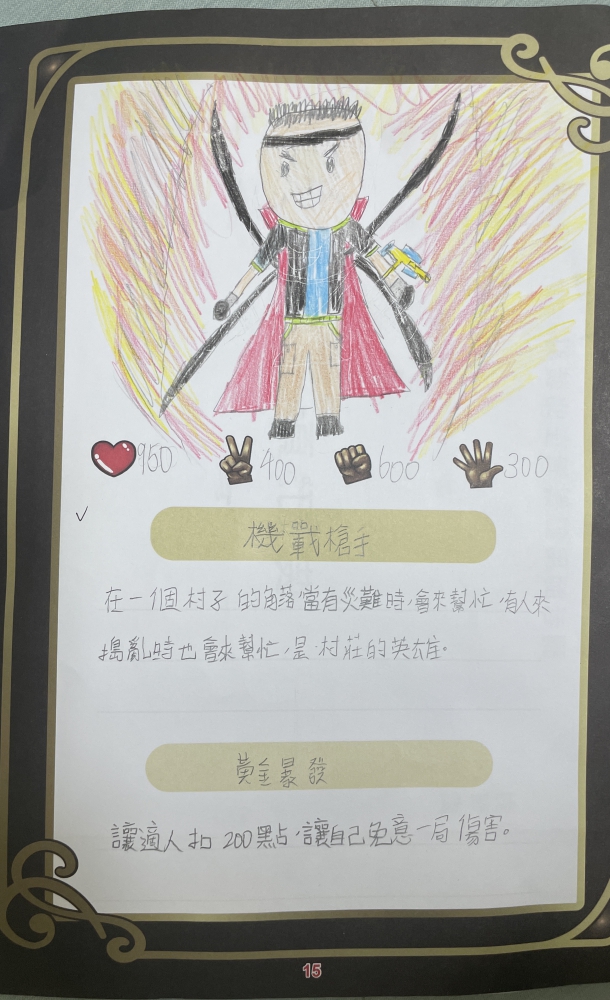 950 400 600 300
✓
機戰槍手
在一個村子的角落,當有災難時,會來幫忙,有人來
搗亂時也會來幫忙,是村莊的英雄。
黃金暴發
讓適人扣200點,讓自己免意一局傷害。
15